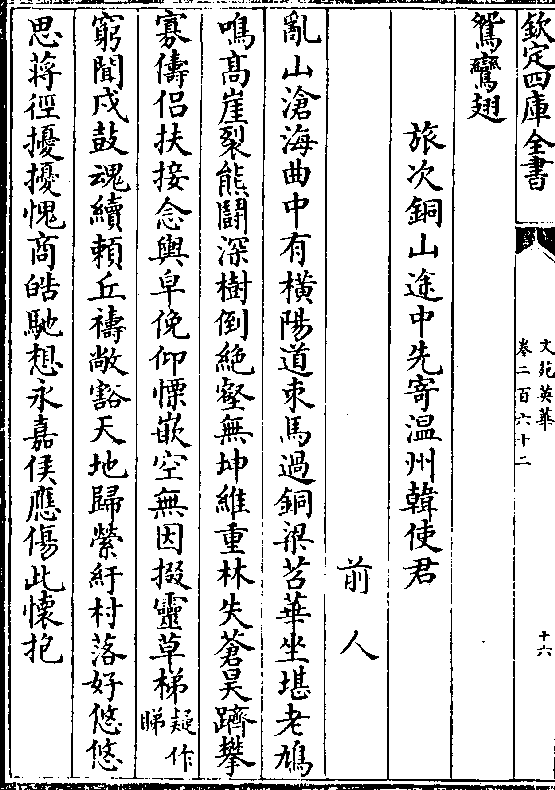 欽定四庫全書
文苑英華
卷二百六十二
十六
鴛鸞翅
旅次銅山途中先寄温州韓使君
前人
亂山滄海曲中有横陽道束馬過銅梁苕華坐堪老鳩
鳴髙崖裂熊鬭深樹倒絶壑無坤維重林失蒼昊躋攀
寡儔侣扶接念輿皁俛仰慄嵌空無因掇靈草梯疑作睇
窮聞戍鼓魂續賴丘禱敞豁天地歸縈紆村落好悠悠
思蔣徑擾擾愧商皓馳想永嘉侯應傷此懷抱